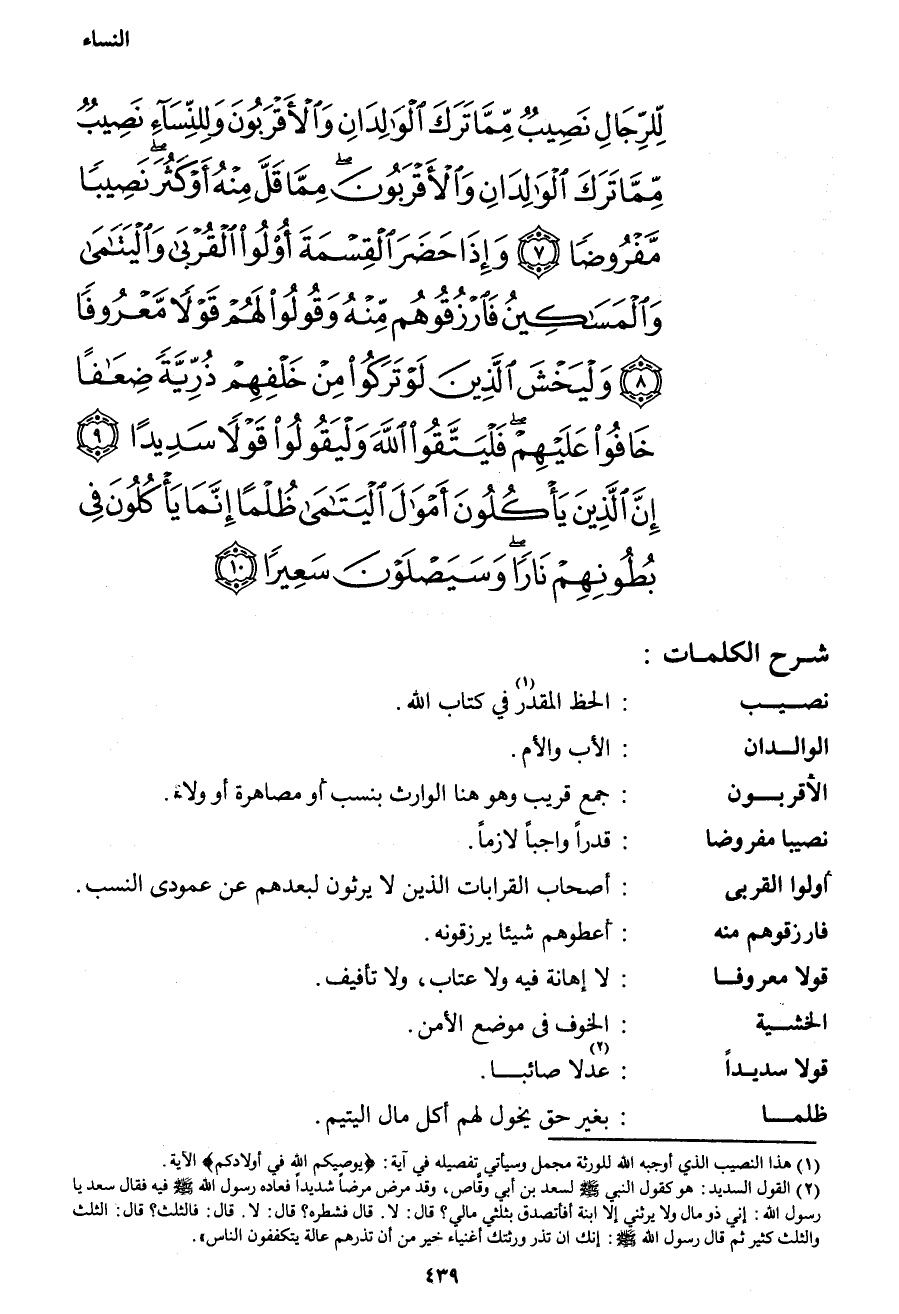 النساء
لِّلرِّجَالِ نَصِيبٌ مِّمَّا تَرَكَ ٱلْوَٰلِدَانِ وَٱلْأَقْرَبُونَ وَلِلنِّسَآءِ نَصِيبٌ
مِّمَّا تَرَكَ ٱلْوَٰلِدَانِ وَٱلْأَقْرَبُونَ مِمَّا قَلَّ مِنْهُ أَوْ كَثُرَ ۚ نَصِيبًا
مَّفْرُوضًا ۝٧ وَإِذَا حَضَرَ ٱلْقِسْمَةَ أُو۟لُوا۟ ٱلْقُرْبَىٰ وَٱلْيَتَٰمَىٰ
وَٱلْمَسَٰكِينُ فَٱرْزُقُوهُم مِّنْهُ وَقُولُوا۟ لَهُمْ قَوْلًا مَّعْرُوفًا
۝٨ وَلْيَخْشَ ٱلَّذِينَ لَوْ تَرَكُوا۟ مِنْ خَلْفِهِمْ ذُرِّيَّةً ضِعَٰفًا
خَافُوا۟ عَلَيْهِمْ ۖ فَلْيَتَّقُوا۟ ٱللَّهَ وَلْيَقُولُوا۟ قَوْلًا سَدِيدًا ۝٩
إِنَّ ٱلَّذِينَ يَأْكُلُونَ أَمْوَٰلَ ٱلْيَتَٰمَىٰ ظُلْمًا إِنَّمَا يَأْكُلُونَ فِى
بُطُونِهِمْ نَارًا ۖ وَسَيَصْلَوْنَ سَعِيرًا ۝١٠
شرح الكلمات :
نصيب : الحظ المقدر(١) في كتاب الله.
الوالدان : الأب والأم.
الأقربون : جمع قريب وهو هنا الوارث بنسب أو مصاهرة أو ولاء.
نصيبا مفروضا : قدراً واجباً لازماً.
أولوا القربى : أصحاب القرابات الذين لا يرثون لبعدهم عن عمودى النسب.
فارزقوهم منه : أعطوهم شيئا يرزقونه.
قولا معروفا : لا إهانة فيه ولا عتاب، ولا تأفيف.
الخشية : الخوف فى موضع الأمن.
قولا سديداً : عدلا(٢) صائبا.
ظلما : بغير حق يخول لهم أكل مال اليتيم.
(١) هذا النصيب الذي أوجبه الله للورثة مجمل وسيأتي تفصيله في آية: ﴿يوصيكم الله في أولادكم﴾ الآية.
(٢) القول السديد: هو كقول النبي ﷺ لسعد بن أبي وقّاص، وقد مرض مرضاً شديداً فعاده رسول الله ﷺ فيه فقال سعد يا
رسول الله: إني ذو مال ولا يرثني إلا ابنة أفأتصدق بثلثي مالي؟ قال: لا. قال فشطره؟ قال: لا. قال: فالثلث؟ قال: الثلث
والثلث كثير ثم قال رسول الله ﷺ: إنك ان تذر ورثتك أغنياء خير من أن تذرهم عالة يتكففون الناس».
٤٣٩